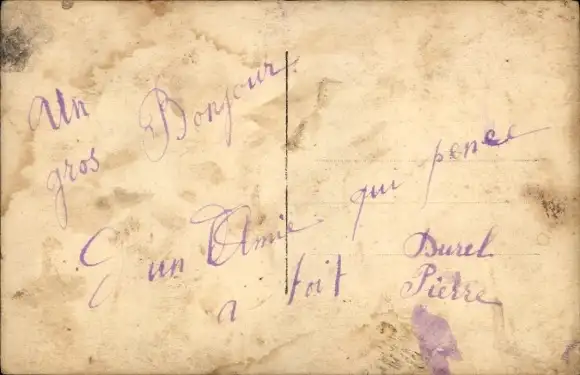 Un
gros Bonjour
un Amie qui pence
a toit
Durel
Pierre